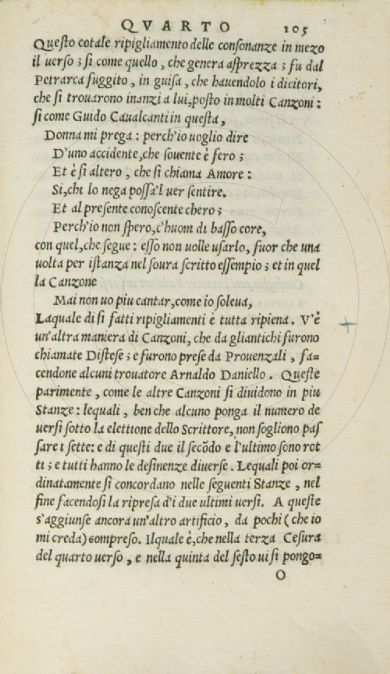 QVARTO 105
Questo cotale ripigliamento delle consonanze in mezo
il uerso; si come quello, che genera asprezza; fu dal
Petrarca fuggito, in guisa, che hauendolo i dicitori,
che si trouarono inanzi a lui, posto in molti Canzoni:
si come Guido Caualcanti in questa,
Donna mi prega: perch'io uoglio dire
D'uno accidente, che souente è fero;
Et è si altero, che si chiama Amore:
Si, chi lo nega possa'l uer sentire.
Et al presente conoscente chero;
Perch'io non spero, c'huom di basso core,
con quel, che segue: esso non uolle usarlo, fuor che una
uolta per istanza nel soura scritto essempio; et in quel
la Canzone
Mai non uo piu cantar, come io soleua,
Laquale di si fatti ripigliamenti è tutta ripiena. V'è
un'altra maniera di Canzoni, che da gliantichi furono
chiamate Distese; e furono prese da Prouenzali, fa=
cendone alcuni trouatore Arnaldo Daniello. Queste
parimente, come le altre Canzoni si diuidono in piu
Stanze: lequali, ben che alcuno ponga il numero de
uersi sotto la elettione dello Scrittore, non sogliono pas
sare i sette: e di questi due il secõdo e l'ultimo sono rot
ti; e tutti hanno le desinenze diuerse. Lequali poi or=
dinatamente si concordano nelle seguenti Stanze, nel
fine facendosi la ripresa d'i due ultimi uersi. A queste
s'aggiunse ancora un'altro artificio, da pochi (che io
mi creda) compreso. Ilquale è, che nella terza Cesura
del quarto uerso, e nella quinta del sesto ui si pongo=
O